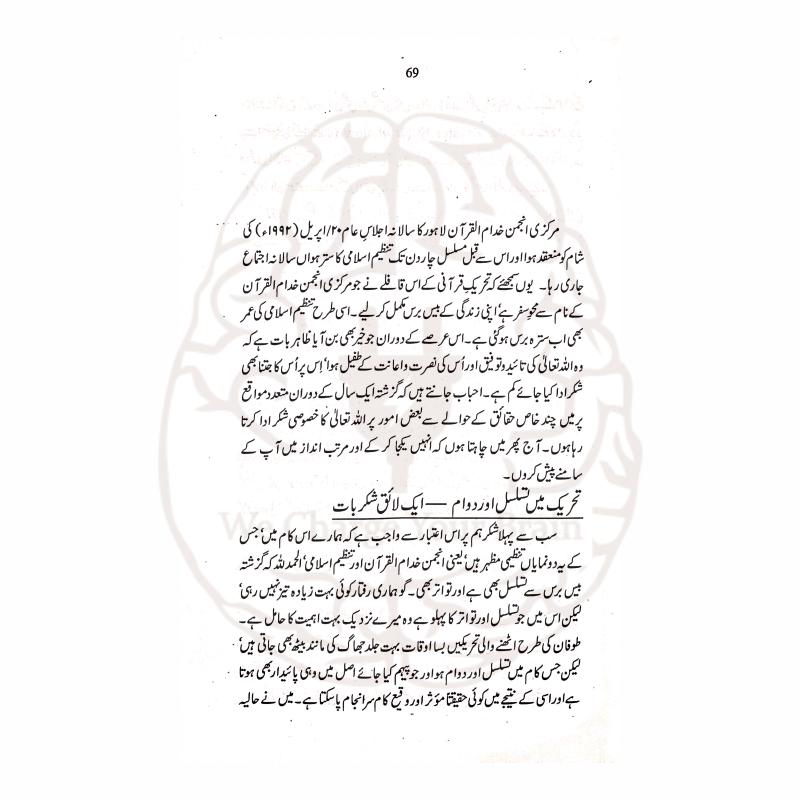 69
مرکزی انجمن خدام القرآن لاہور کا سالانہ اجلاسِ عام ۲۰/اپریل (۱۹۹۲ء) کی
شام کو منعقد ہوا اور اس سے قبل مسلسل چار دن تک تنظیم اسلامی کا سترہواں سالانہ اجتماع
جاری رہا۔ یوں سمجھئے کہ تحریک قرآنی کے اس قافلے نے جو مرکزی انجمن خدام القرآن
کے نام سے محوِ سفر ہے، اپنی زندگی کے بیس برس مکمل کر لیے۔ اسی طرح تنظیم اسلامی کی عمر
بھی اب سترہ برس ہو گئی ہے۔ اس عرصے کے دوران جو خیر بھی بن آیا ظاہر بات ہے کہ
وہ اللہ تعالیٰ کی تائید و توفیق اور اُس کی نصرت و اعانت کے طفیل ہوا، اِس پر اُس کا جتنا بھی
شکر ادا کیا جائے کم ہے۔ احباب جانتے ہیں کہ گزشتہ ایک سال کے دوران متعدد مواقع
پر میں چند خاص حقائق کے حوالے سے بعض امور پر اللہ تعالیٰ کا خصوصی شکر ادا کرتا
رہا ہوں۔ آج پھر میں چاہتا ہوں کہ انہیں یکجا کر کے اور مرتب انداز میں آپ کے
سامنے پیش کروں۔
تحریک میں تسلسل اور دوام — ایک لائق شکر بات
We Change Your Brain
سب سے پہلا شکر ہم پر اس اعتبار سے واجب ہے کہ ہمارے اس کام میں، جس
کے یہ دو نمایاں تنظیمی مظہر ہیں، یعنی انجمن خدام القرآن اور تنظیم اسلامی، الحمد للہ کہ گزشتہ
بیس برس سے تسلسل بھی ہے اور تواتر بھی۔ گو ہماری رفتار کوئی بہت زیادہ تیز نہیں رہی،
لیکن اس میں جو تسلسل اور تواتر کا پہلو ہے وہ میرے نزدیک بہت اہمیت کا حامل ہے۔
طوفان کی طرح اٹھنے والی تحریکیں بسا اوقات بہت جلد جھاگ کی مانند بیٹھ بھی جاتی ہیں،
لیکن جس کام میں تسلسل اور دوام ہو اور جو پیہم کیا جائے اصل میں وہی پائیدار بھی ہوتا
ہے اور اسی کے نتیجے میں کوئی حقیقتاً مؤثر اور وقیع کام سرانجام پا سکتا ہے۔ میں نے حالیہ